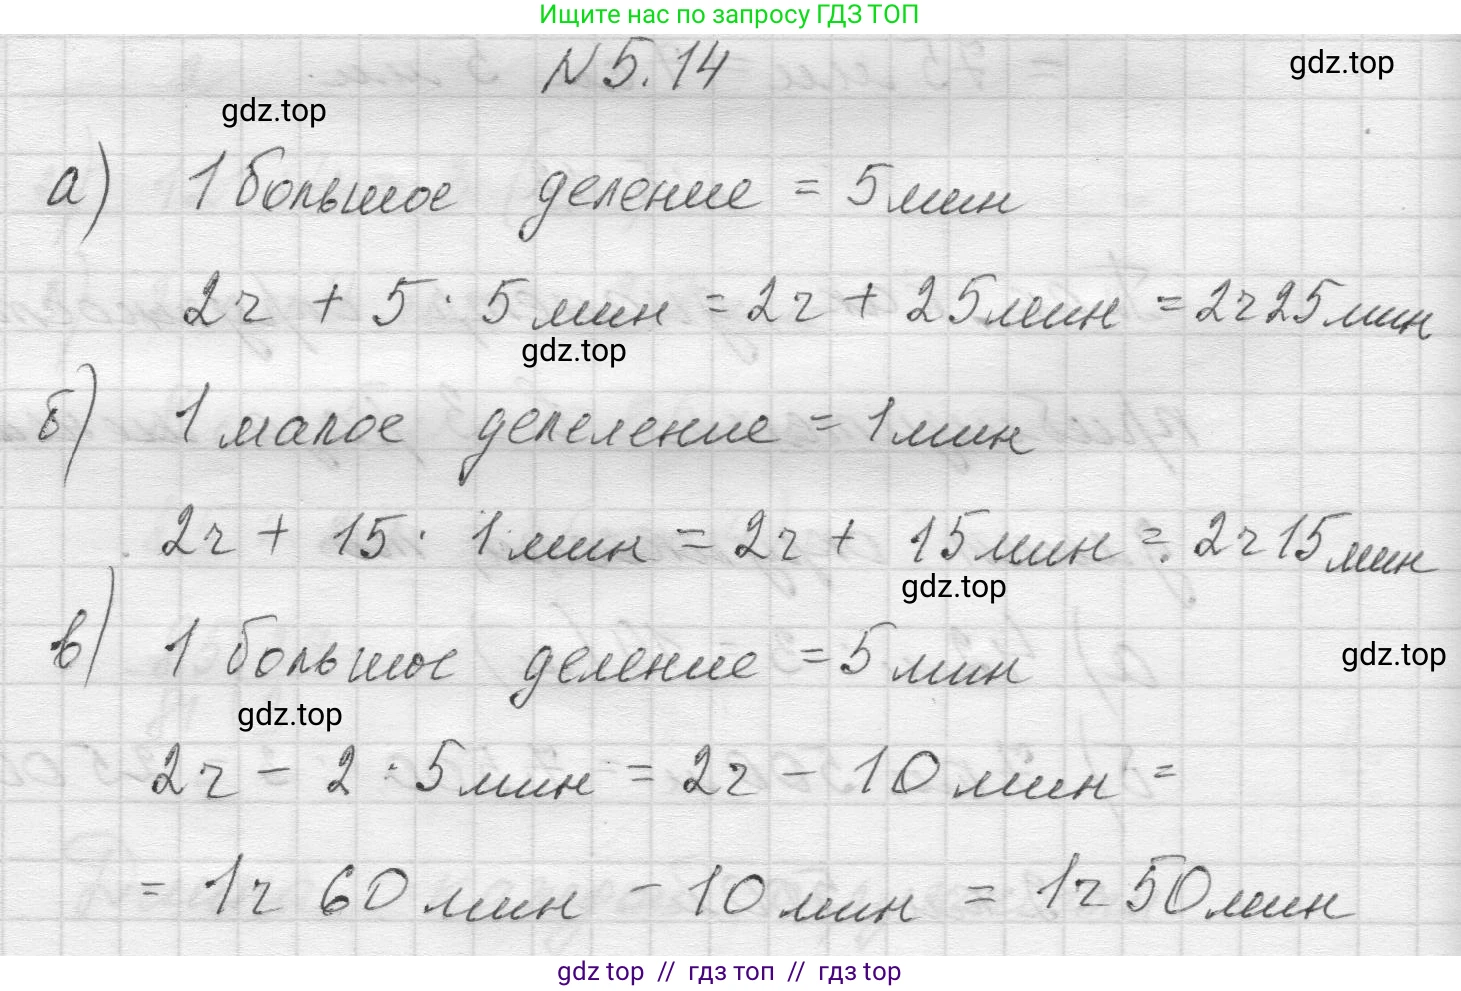 Ищите нас по запросу ГДЗ ТОП
№5.14
gdz.top
gdz.top
а) 1 большое деление = 5 мин
2 ч + 5 · 5 мин = 2 ч + 25 мин = 2 ч 25 мин
gdz.top
б) 1 малое депеление = 1 мин
2 ч + 15 · 1 мин = 2 ч + 15 мин = 2 ч 15 мин
gdz.top
в) 1 большое деление = 5 мин
gdz.top
gdz.top
2 ч - 2 · 5 мин = 2 ч - 10 мин =
= 1 ч 60 мин - 10 мин = 1 ч 50 мин
gdz top // гдз топ // гдз top